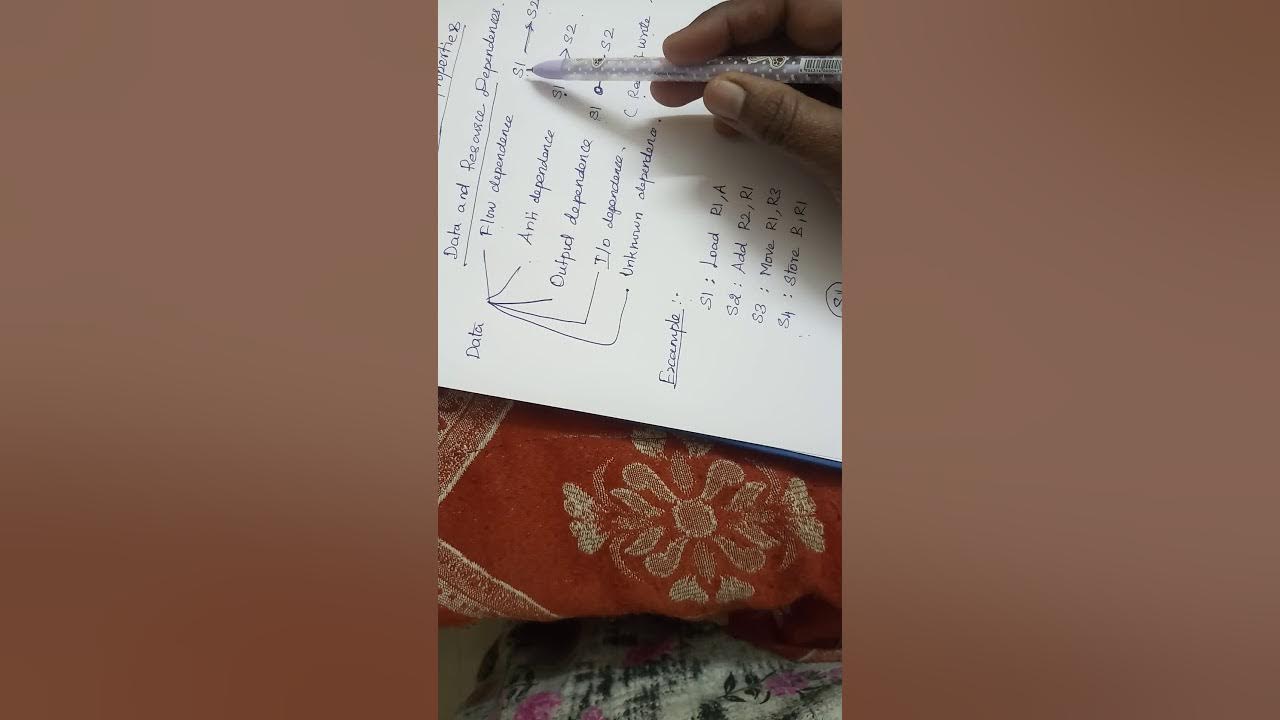 Properties
Data and Resource Dependences.
Data
Flow dependence S1 → S2
Anti dependence S1 > S2
Output dependence S1 o S2
I/o dependence, ( write,
Unknown dependence.
Example :-
S1 : Load R1, A
S2 : Add R2, R1
S3 : Move R1, R3
S4 : Store B, R1
S1